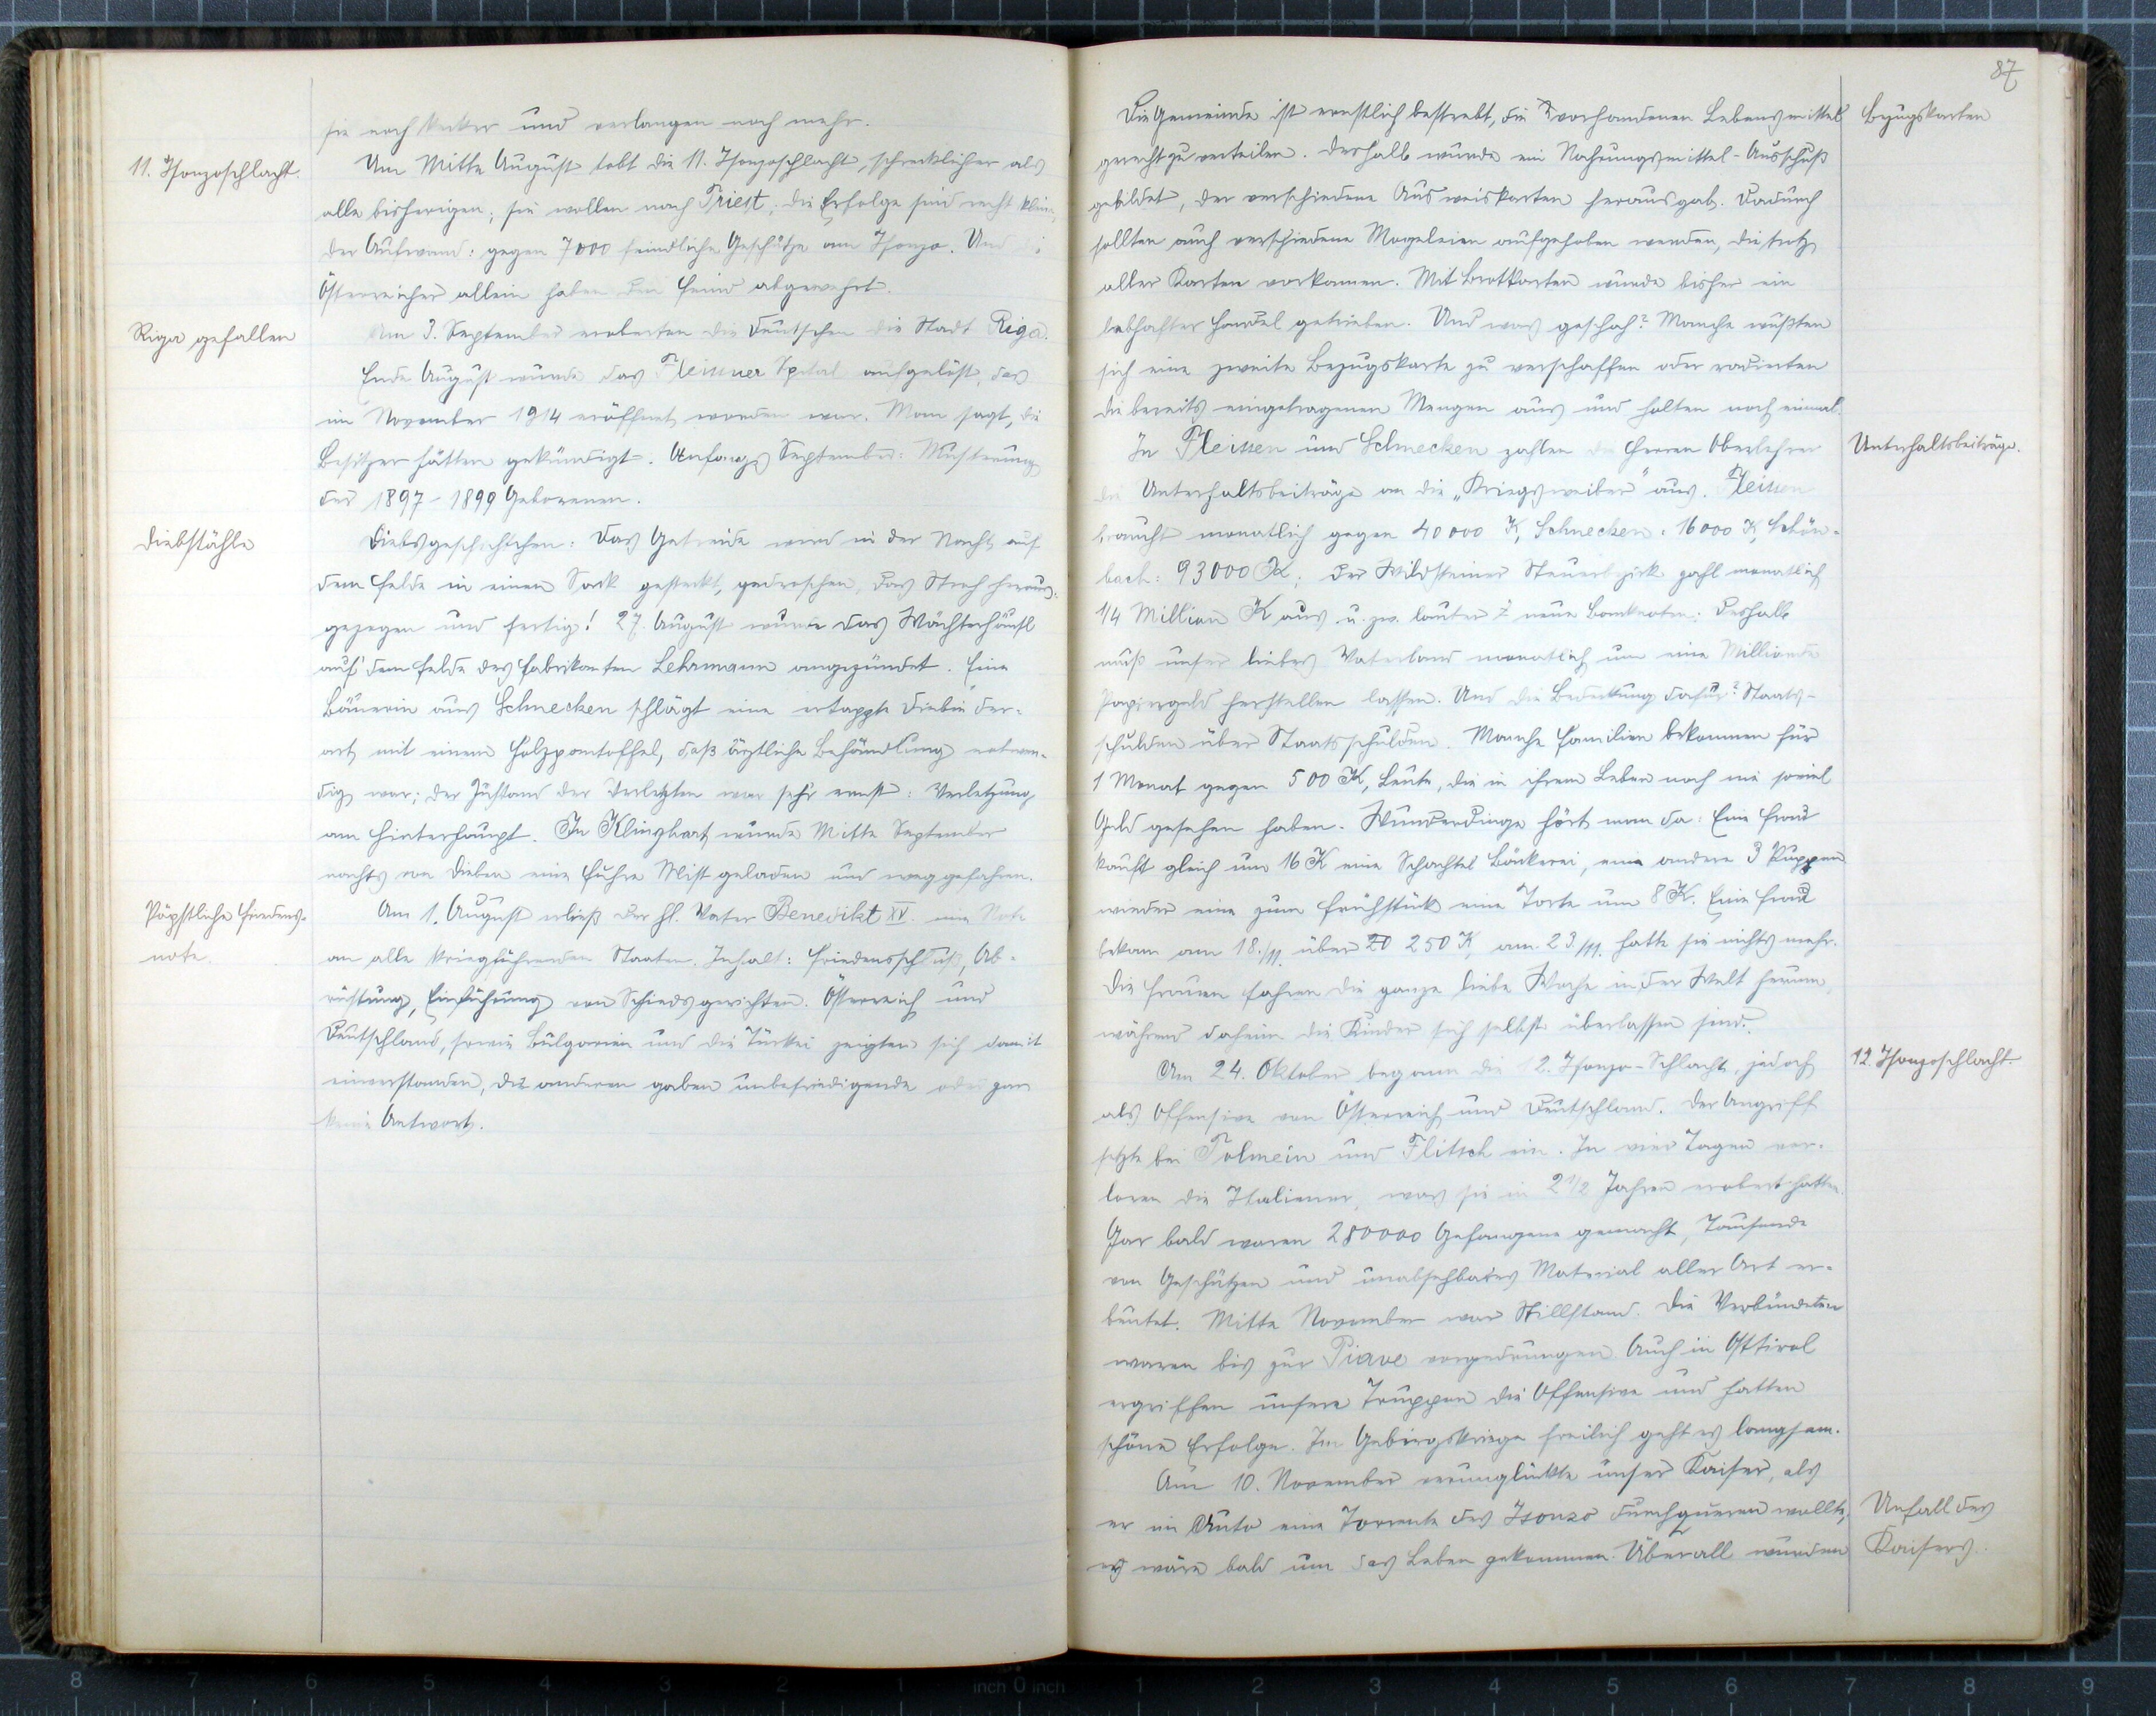 sie noch stärker und verlangen noch mehr.
11. Isonzoschlacht.
Um Mitte August tobt die 11. Isonzoschlacht, schrecklicher als
alle bisherigen; sie wollen nach Triest; die Erfolge sind recht klein,
der Aufwand: gegen 7000 feindliche Geschütze am Isonzo. Und die
Österreicher allein haben den Feind abgewehrt.
Riga gefallen
Am 3. September eroberten die Deutschen die Stadt Riga.
Ende August wurde das Fleissner Spital aufgelöst, das
im November 1914 eröffnet worden war. Man sagt, die
Besitzer hätten gekündigt. Anfangs September: Musterung
der 1897-1899 Geborenen.
Diebstähle
Diebsgeschichtchen: Das Getreide wird in der Nacht auf
dem Felde in einen Sack gesteckt, gedroschen, das Stroh heraus-
gezogen und fertig! 27. August wurde das Wächterhäusl
auf dem Felde des Fabrikanten Lehrmann angezündet. Eine
Bäuerin aus Schnecken schlägt eine ertappte Diebin der-
art mit einem Holzpantoffel, daß ärztliche Behandlung notwen-
dig war; der Zustand der Verletzten war sehr ernst: Verletzung
am Hinterhaupt. In Klinghart wurde Mitte September
nachts von Dieben eine Fuhre Mist geladen und weggefahren.
Päpstliche Friedens-
note.
Am 1. August erließ der hl. Vater Benedikt XV. eine Note
an alle kriegführenden Staaten. Inhalt: Friedensschluß, Ab-
rüstung, Einführung von Schiedsgerichten. Österreich und
Deutschland, sowie Bulgarien und die Türkei zeigten sich damit
einverstanden, die anderen gaben unbefriedigende oder gar
keine Antwort.
87
Die Gemeinde ist ernstlich bestrebt, die vorhandenen Lebensmittel
Bezugskarten
gerecht zu verteilen. Deshalb wurde ein Nahrungsmittel-Ausschuß
gebildet, der verschiedene Ausweiskarten herausgab. Dadurch
sollten auch verschiedene Mogeleien aufgehoben werden, die trotz
aller Karten vorkamen. Mit Brotkarten wurde bisher ein
lebhafter Handel getrieben. Und was geschah? Manche wußten
sich eine zweite Bezugskarte zu verschaffen oder radierten
die bereits eingetragenen Mengen aus und holten noch einmal.
In Fleissen und Schnecken zahlen die Herren Oberlehrer
Unterhaltsbeiträge.
die Unterhaltsbeiträge an die „Kriegsweiber" aus. Fleissen
braucht monatlich gegen 40000 K, Schnecken: 16000 K, Schön-
bach: 93000 K; der Wildsteiner Steuerbezirk zahlt monatlich
1/4 Million K aus u. zw. lauter neue Banknoten. Deshalb
muß unser liebes Vaterland monatlich um eine Milliarde
Papiergeld herstellen lassen. Und die Bedeckung dafür? Staats-
schulden über Staatsschulden. Manche Familien bekommen für
1 Monat gegen 500 K, Leute, die in ihrem Leben noch nie soviel
Geld gesehen haben. Wunderdinge hört man da: Eine Frau
kauft gleich um 16 K eine Schachtel Bäckerei, eine andere 3 Puppen
wieder eine zum Frühstück eine Torte um 8 K. Eine Frau
bekam am 18./11. über 250 K, am 23./11. hatte sie nichts mehr.
Die Frauen fahren die ganze liebe Woche in der Welt herum,
während daheim die Kinder sich selbst überlassen sind.
12. Isonzoschlacht.
Am 24. Oktober begann die 12. Isonzo-Schlacht, jedoch
als Offensive von Österreich und Deutschland. Der Angriff
setzte bei Tolmein und Flitsch ein. In vier Tagen ver-
loren die Italiener, was sie in 2 1/2 Jahren erobert hatten.
Gar bald waren 280000 Gefangene gemacht, Tausende
von Geschützen und unabsehbares Material aller Art er-
beutet. Mitte November war Stillstand. Die Verbündeten
waren bis zur Piave vorgedrungen. Auch in Osttirol
ergriffen unsere Truppen die Offensive und hatten
schöne Erfolge. Im Gebirgskriege freilich geht es langsam.
Am 10. November verunglückte unser Kaiser, als
er im Auto eine Torrente des Isonzo durchqueren wollte,
Unfall des
er wäre bald um das Leben gekommen. Überall wurden
Kaisers.